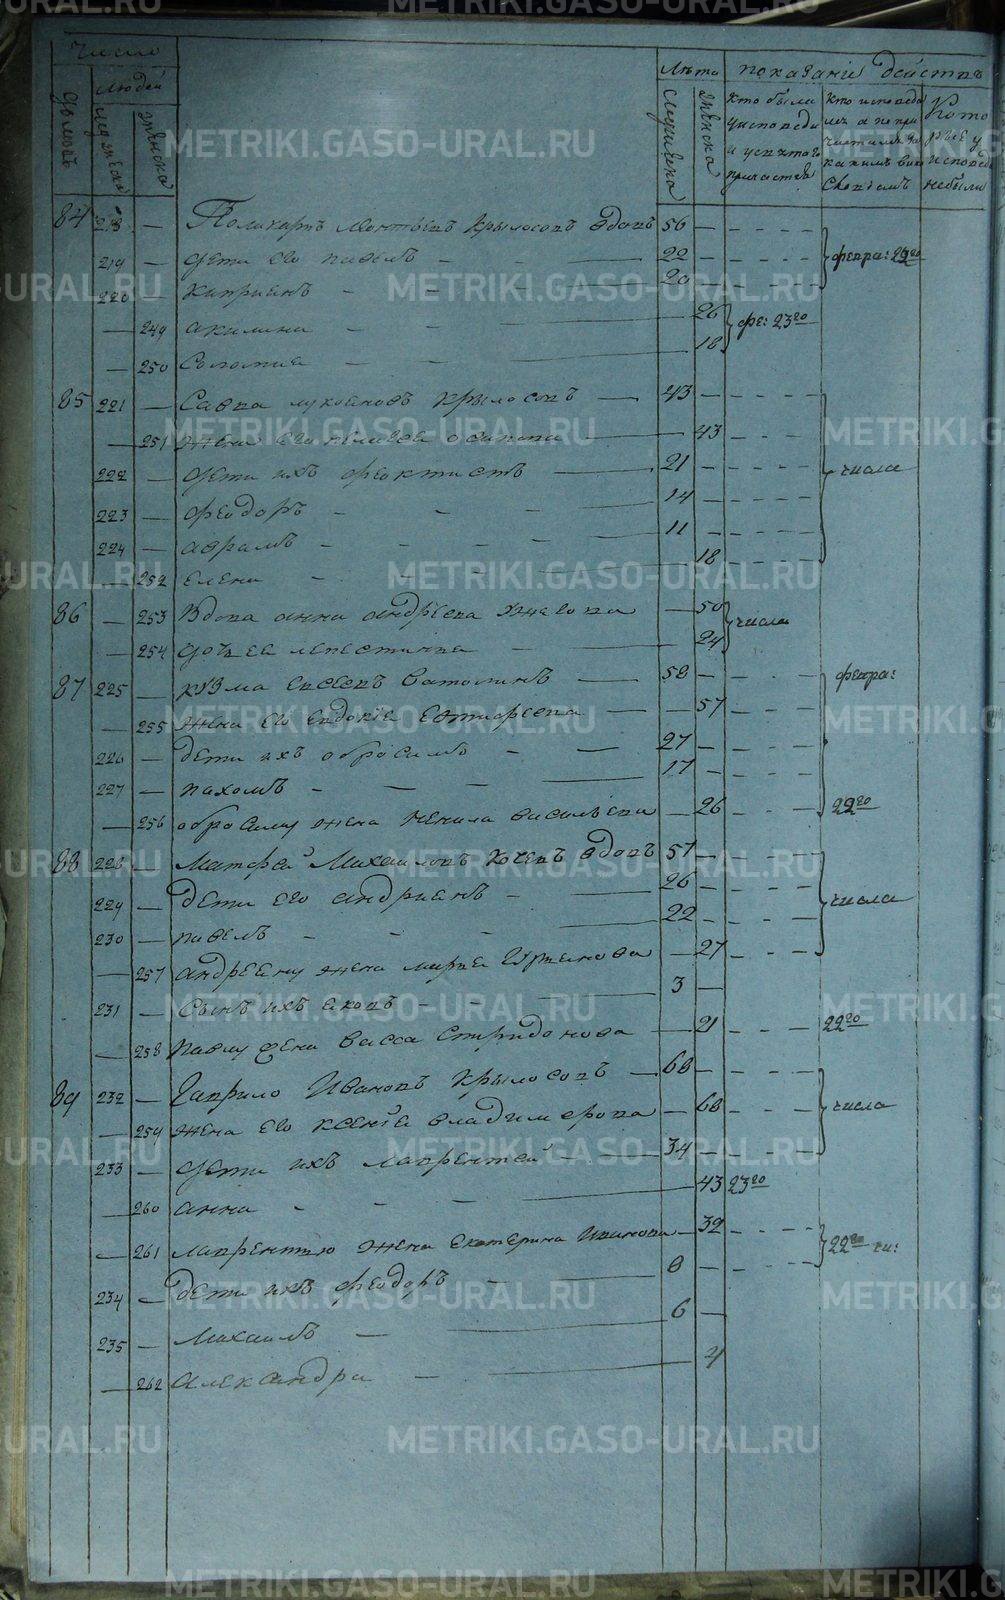 число
людей
лѣта
показаніе действъ
домовъ
мужеска
женска
мужеска
женска
кто были
у исповеди
и у святаго
причастия
кто исповеда
лис а не при
частились за
каким вин
Кото
рые у
исповед
небыли
84 218 — Поликарпъ Монтеевъ Крылосовъ вдовъ 56 —
219 — дети его павелъ — 22 —
220 — киприанъ — 20 —
февра: 22го
— 249 акилина — 26
— 250 Соломиа — 18
фе: 23го
85 221 — Савва лукояновъ крылосовъ — 43 —
— 251 жена его осипова — 43
222 — дети ихъ феоктистъ — 21 —
числа
223 — феодоръ — 14 —
224 — аврамъ — 11 —
— 252 елена — 18
86 — 253 Вдова анна андреева — 50
числа
— 254 дочь ея — 24
87 225 — кузма евсеевъ ватолинъ — 58 —
февра:
— 255 жена его евдокіе — 57
226 — дети ихъ обросимъ — 27 —
227 — пахомъ — 17 —
— 256 обросиму жена ненила васильева — 26
22го
88 228 — Матфей Михаиловъ вдовъ 57 —
229 — дети его андрианъ — 26 —
числа
230 — павелъ — 22 —
— 257 андреяну жена марья — 27
231 — сынъ ихъ яковъ — 3 —
— 258 павлу жена васса спиридонова — 21
22го
89 232 — Гаврило Ивановъ Крылосовъ — 68 —
— 259 жена его ксенія владимерова — 68
числа
233 — дети ихъ лаврентей — 34 —
— 260 анна — 43 23го
— 261 лаврентью жена екатерина иванова — 32
22го чи:
234 — дети ихъ феодоръ — 8 —
235 — Михаилъ — 6 —
— 262 александра — 4
METRIKI.GASO-URAL.RU